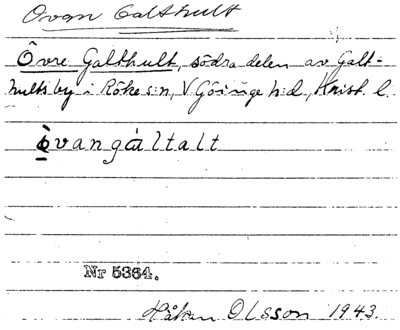 Ovan Galthult
Övre Galthult, södra delen av Galt=
hults by i Röke s:n, V Göinge h:d, Krist. l.
òvangàltalt
Nr 5364.
Håkan Olsson 1943.